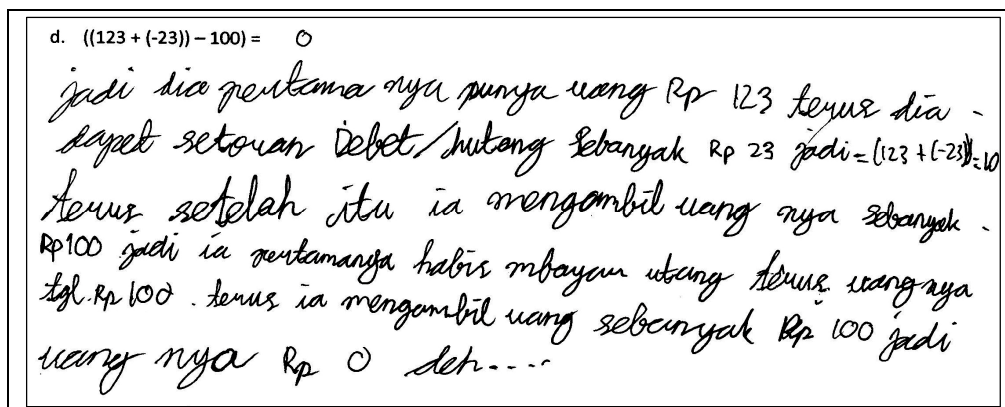 d. ((123 + (-23)) – 100) = 0
jadi dia pertama nya punya uang Rp 123 terus dia -
dapet setoran Debet/hutang sebanyak Rp 23 jadi = (123 + (-23)) = 10
terus setelah itu ia mengambil uang nya sebanyak -
Rp100 jadi ia pertamanya habis mbayar utang terus uang nya
tgl. Rp 100 . terus ia mengambil uang sebanyak Rp 100 jadi
uang nya Rp 0 deh....